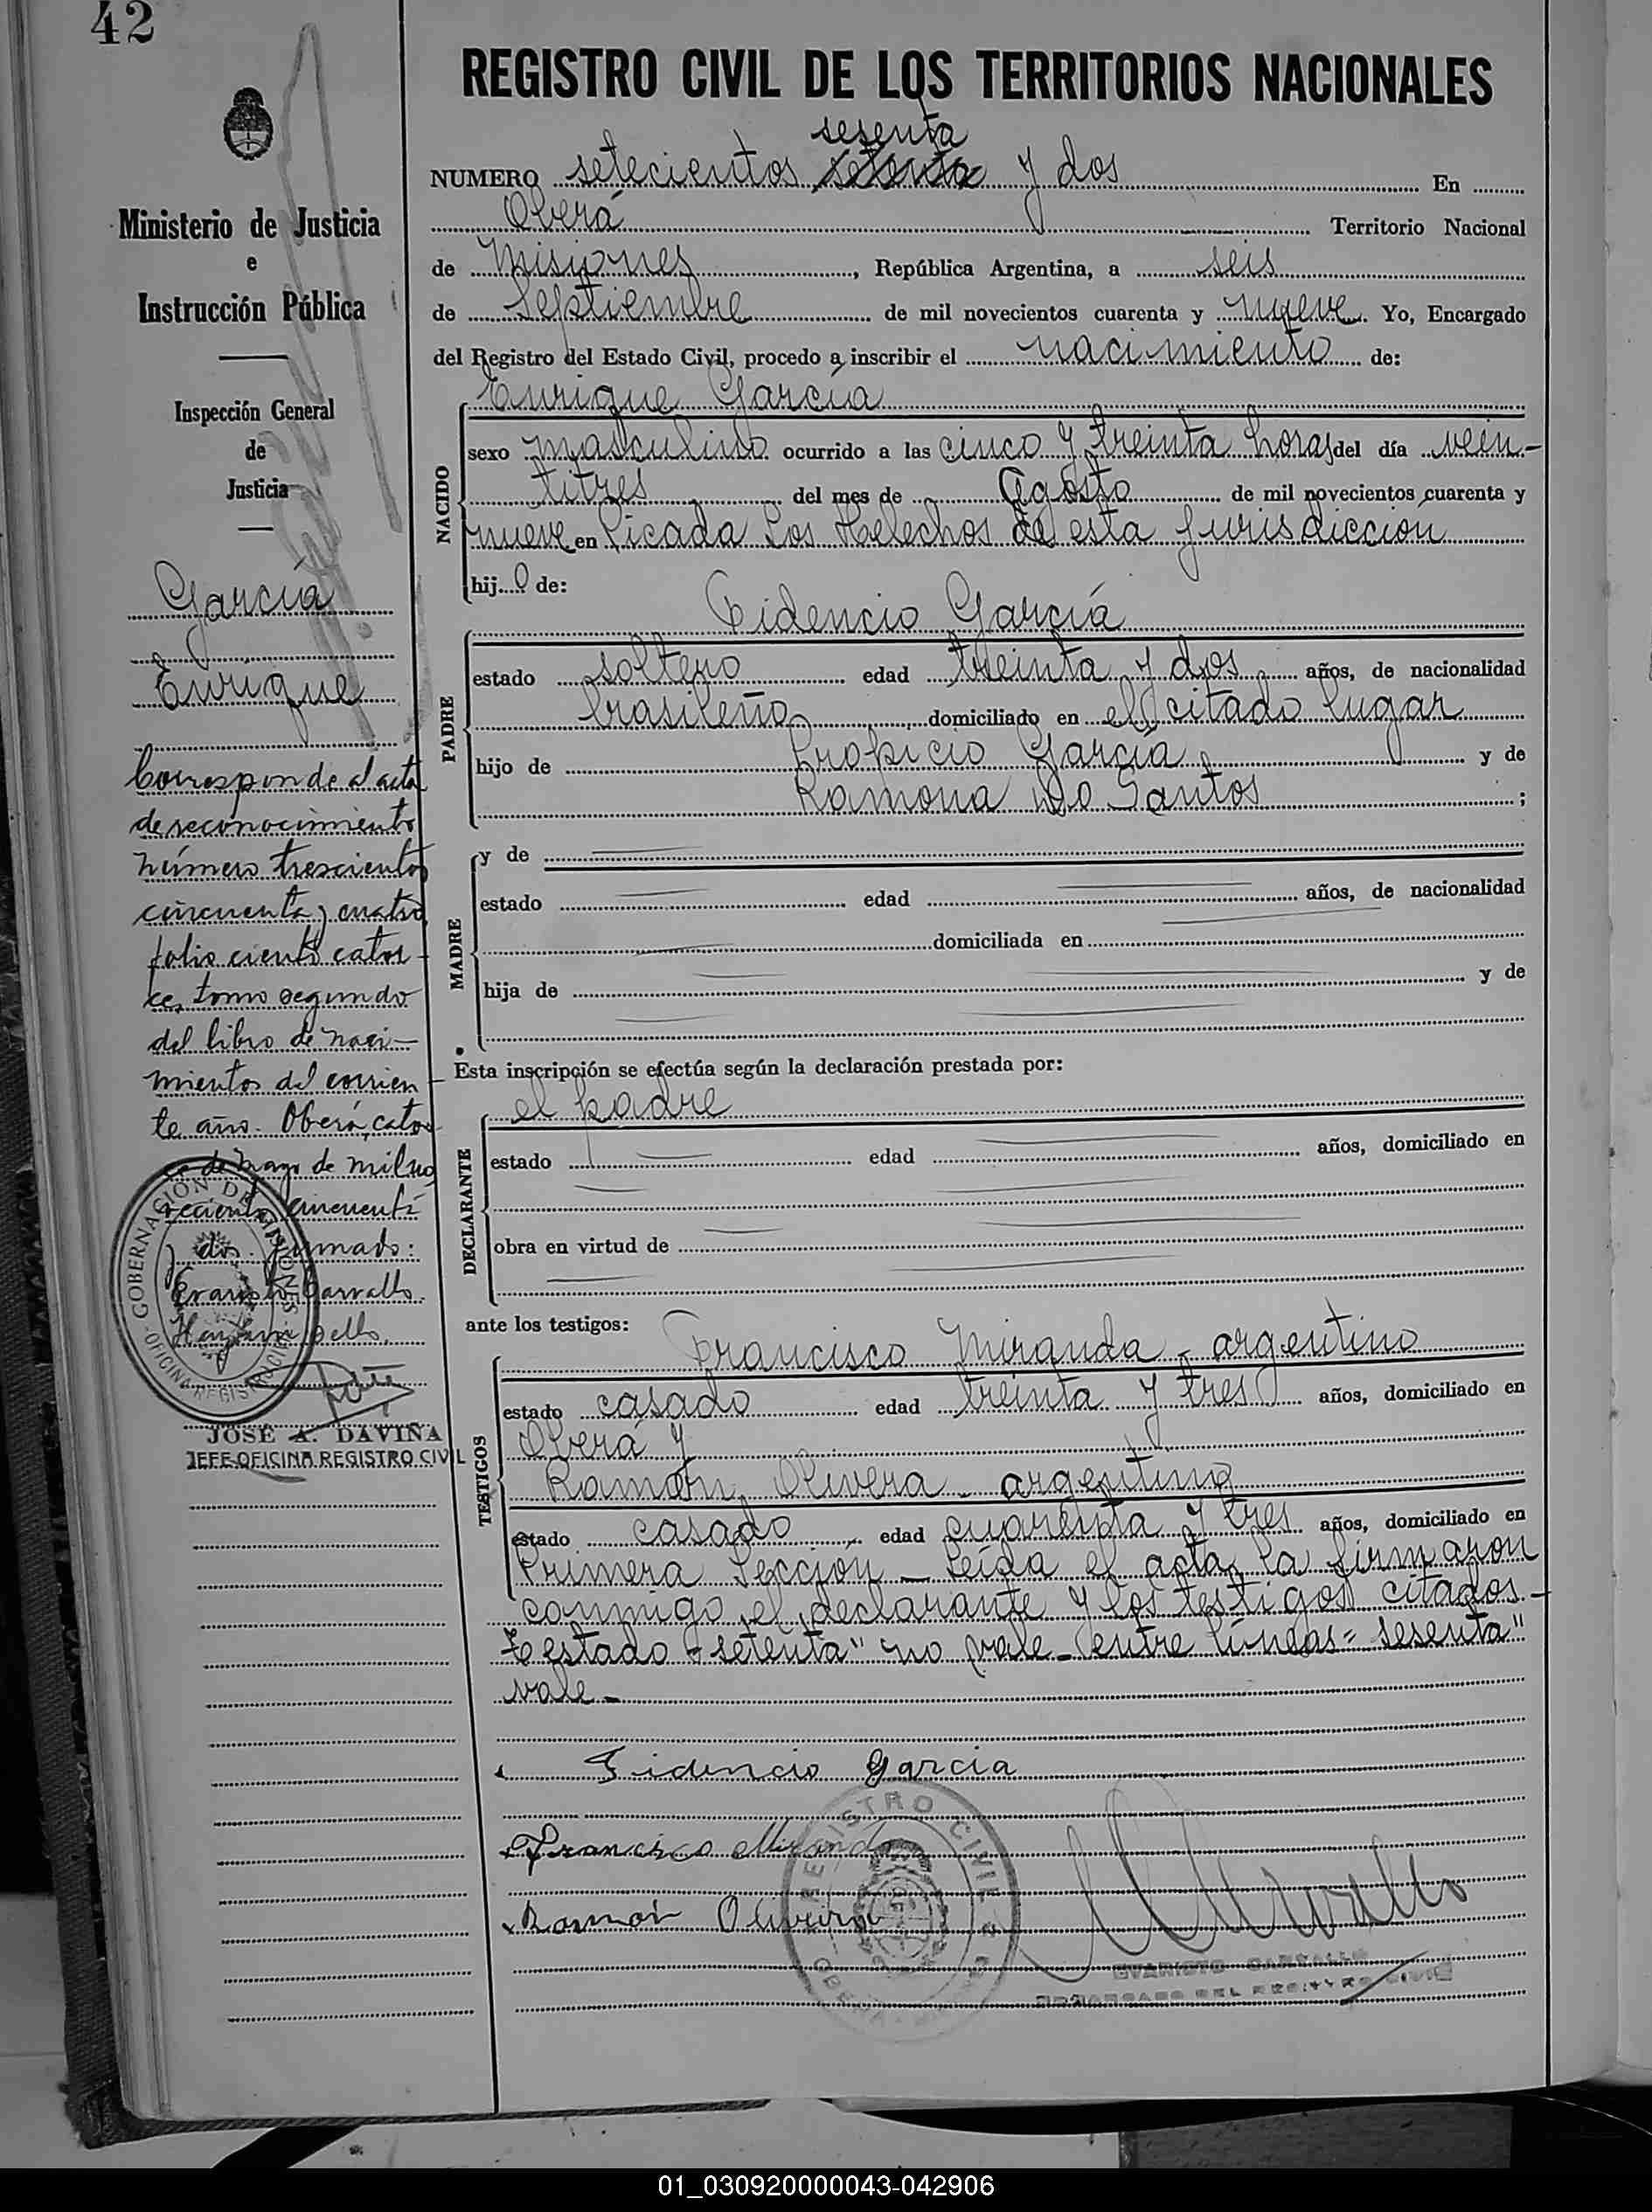 42
REGISTRO CIVIL DE LOS TERRITORIOS NACIONALES
Ministerio de Justicia
e
Instrucción Pública
Inspección General
de
Justicia
García
Enrique
Corresponde al acta
de reconocimiento
número trescientos
cincuenta y cuatro
folio ciento cator-
ce, tomo segundo
del libro de naci-
mientos del corrien-
te año. Oberá, cator
ce de mayo de mil no
vecientos cincuenta
y dos. Firmado:
Evaristo Carvallo.
GOBERNACIÓN DE MISIONES
OFICINA REGISTRO CIVIL
JOSÉ A. DAVIÑA
JEFE OFICINA REGISTRO CIVIL
sesenta
NUMERO setecientos setenta y dos En
Oberá Territorio Nacional
de Misiones, República Argentina, a seis
de Septiembre de mil novecientos cuarenta y nueve. Yo, Encargado
del Registro del Estado Civil, procedo a inscribir el nacimiento de:
NACIDO
Enrique García
sexo masculino ocurrido a las cinco y treinta horas del día vein-
titres del mes de Agosto de mil novecientos cuarenta y
nueve en Picada Los Helechos de esta jurisdicción
hijo de:
PADRE
Fidencio García
estado soltero edad treinta y dos años, de nacionalidad
brasileño domiciliado en el citado lugar
hijo de Propicio García y de
Ramona do Santos ;
MADRE
y de
estado edad años, de nacionalidad
domiciliada en
hija de y de
Esta inscripción se efectúa según la declaración prestada por:
DECLARANTE
el padre
estado edad años, domiciliado en
obra en virtud de
ante los testigos:
TESTIGOS
Francisco Miranda - argentino
estado casado edad treinta y tres años, domiciliado en
Oberá y
Ramón Olivera - argentino
estado casado edad cuarenta y tres años, domiciliado en
Primera Sección - Leída el acta, la firmaron
conmigo, el declarante y los testigos citados.-
Testado "setenta" no vale - entre líneas "sesenta"
vale -
Fidencio Garcia
Francisco Miranda
Ramon Oliveira
REGISTRO CIVIL
OBERA
EVARISTO CARVALLO
ENCARGADO DEL REGISTRO CIVIL
01_030920000043-042906